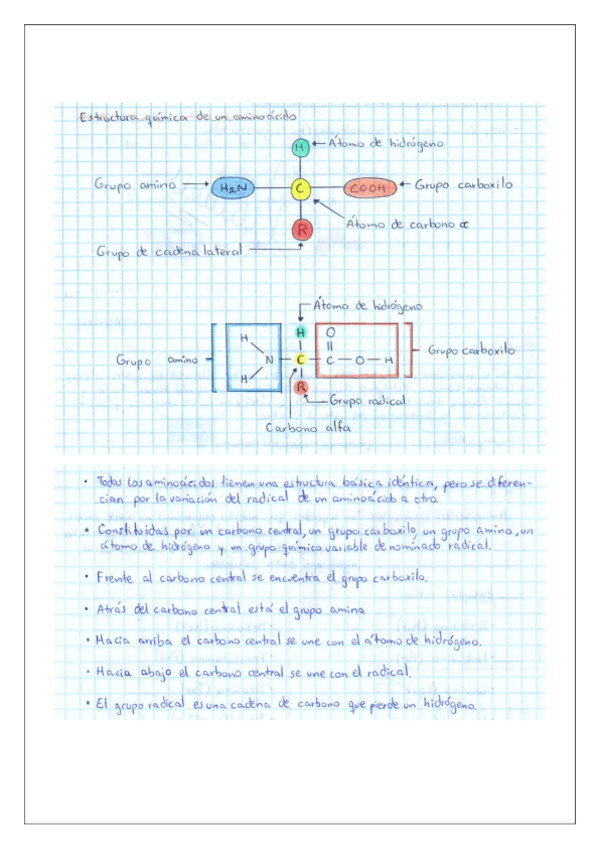 Estructura química de un aminoácido
H Átomo de hidrógeno
Grupo amino H2N C COOH Grupo carboxilo
Átomo de carbono α
R
Grupo de cadena lateral
Átomo de hidrógeno
H H O
Grupo amino N C C O H Grupo carboxilo
H R
Grupo radical
Carbono alfa
• Todos los aminoácidos tienen una estructura básica idéntica, pero se diferen-
cian por la variación del radical de un aminoácido a otro.
• Constituidas por un carbono central, un grupo carboxilo, un grupo amino, un
átomo de hidrógeno y un grupo químico variable denominado radical.
• Frente al carbono central se encuentra el grupo carboxilo.
• Atrás del carbono central está el grupo amina
• Hacia arriba el carbono central se une con el átomo de hidrógeno.
• Hacia abajo el carbono central se une con el radical.
• El grupo radical es una cadena de carbono que pierde un hidrógeno.